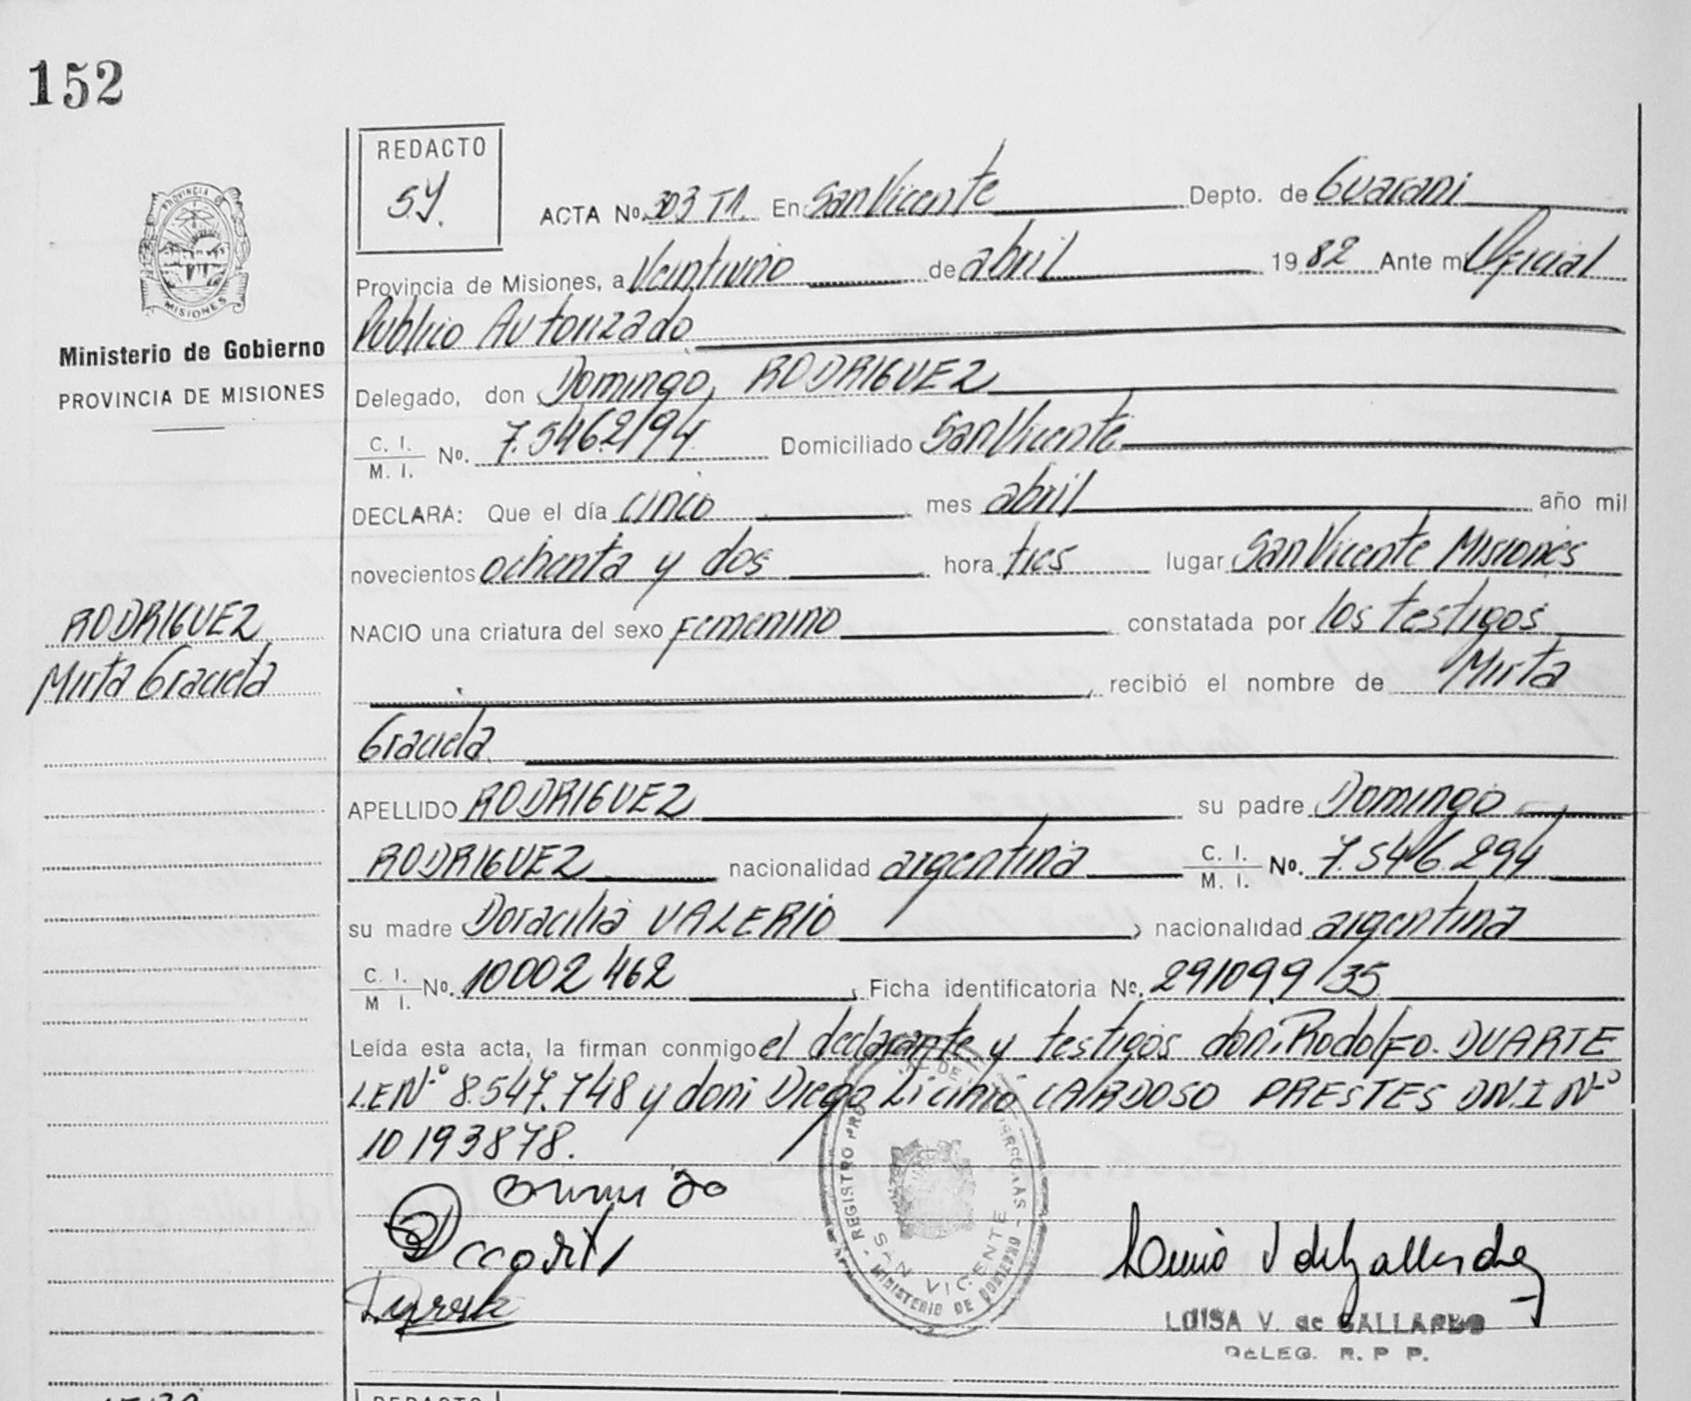 152
REDACTO
SY.
ACTA No. 303 TA. En San Vicente Depto. de Guarani
Provincia de Misiones, a Veintiuno de abril 1982 Ante mi Oficial
Publico Autorizado
Ministerio de Gobierno
PROVINCIA DE MISIONES
Delegado, don Domingo, RODRIGUEZ
C. I. / M. I. No. 7.546.2194 Domiciliado San Vicente
DECLARA: Que el día cinco mes abril año mil
novecientos ochenta y dos hora tres lugar San Vicente Misiones
RODRIGUEZ
Mirta Graciela
NACIO una criatura del sexo Femenino constatada por los testigos
, recibió el nombre de Mirta
Graciela
APELLIDO RODRIGUEZ su padre Domingo
RODRIGUEZ nacionalidad argentina C. I. / M. I. No. 7.546.294
su madre Doracilia VALERIO, nacionalidad argentina
C. I. / M I. No. 10002462, Ficha identificatoria No. 291099/35
Leída esta acta, la firman conmigo el declarante y testigos don: Rodolfo. DUARTE
L.E Nº 8.547.748 y don: Diego Licinio CARDOSO PRESTES DN.I Nº
10193878.
REGISTRO PRO DE PERSONAS
SAN VICENTE
MINISTERIO DE GOBIERNO
LUISA V. de GALLARDO
DELEG. R. P P.
REDACTO